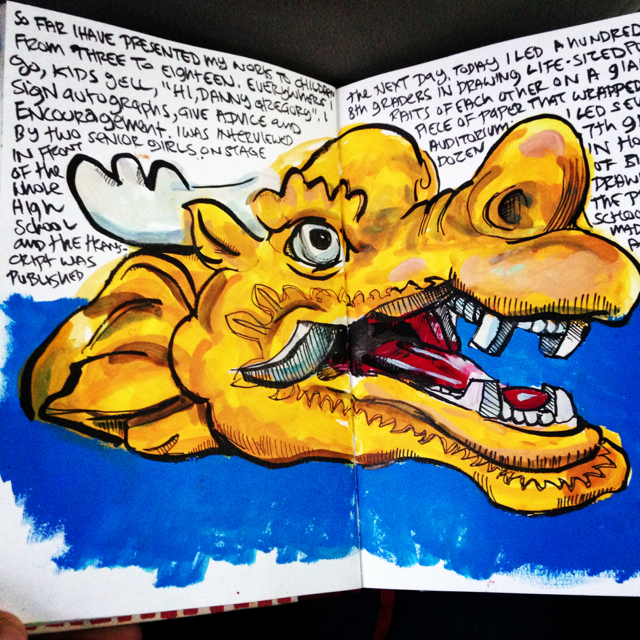 SO FAR I HAVE PRESENTED MY WORK TO CHILDREN
FROM THREE TO EIGHTEEN. EVERYWHERE I
GO, KIDS YELL, "HI, DANNY GREGORY". I
SIGN AUTOGRAPHS, GIVE ADVICE AND
ENCOURAGEMENT. I WAS INTERVIEWED
BY TWO SENIOR GIRLS ON STAGE
IN FRONT
OF THE
WHOLE
HIGH
SCHOOL
AND THE TRANS-
CRIPT WAS
PUBLISHED
THE NEXT DAY. TODAY I LED A HUNDRED
8TH GRADERS IN DRAWING LIFE-SIZED
PAITS OF EACH OTHER ON A
PIECE OF PAPER THAT WRAPPED
AUDITORIUM I LED
DOZEN 7TH
IN
OF
DRAW
THE
SCHOOL
MAD